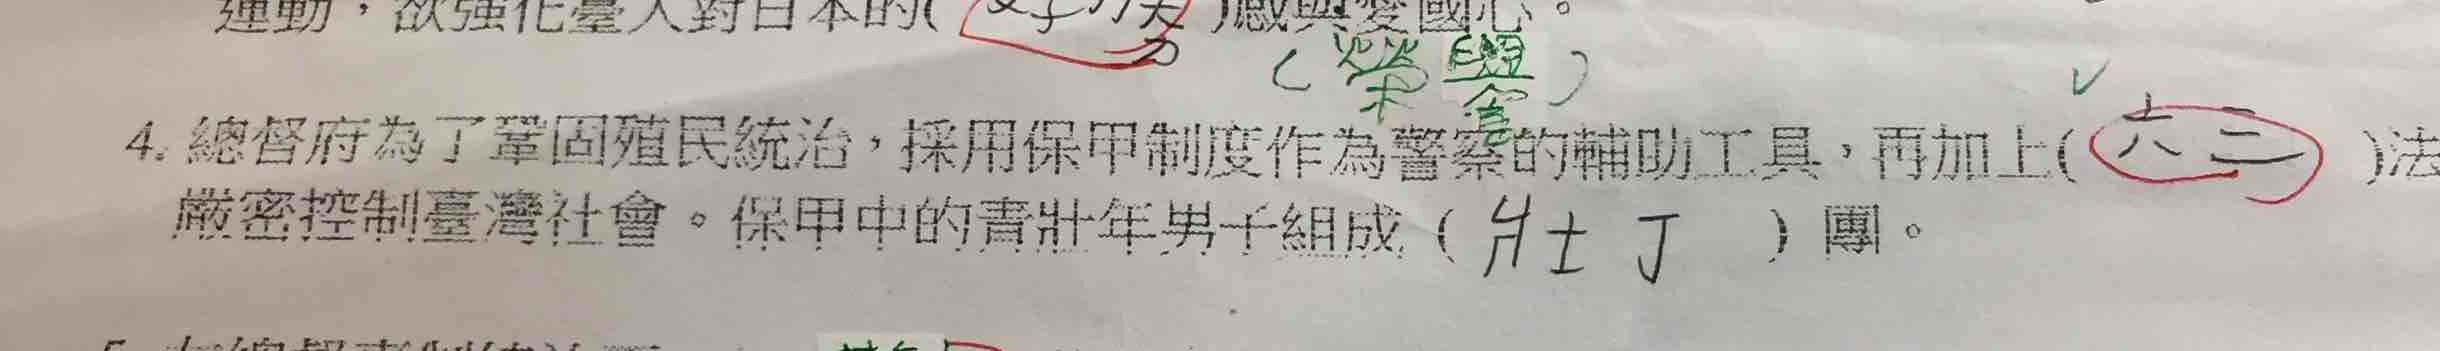 運動，欲強化臺人對日本的( )感與愛國心。
(榮譽)
4. 總督府為了鞏固殖民統治，採用保甲制度作為警察的輔助工具，再加上(六二)法
嚴密控制臺灣社會。保甲中的青壯年男子組成(壯丁)團。